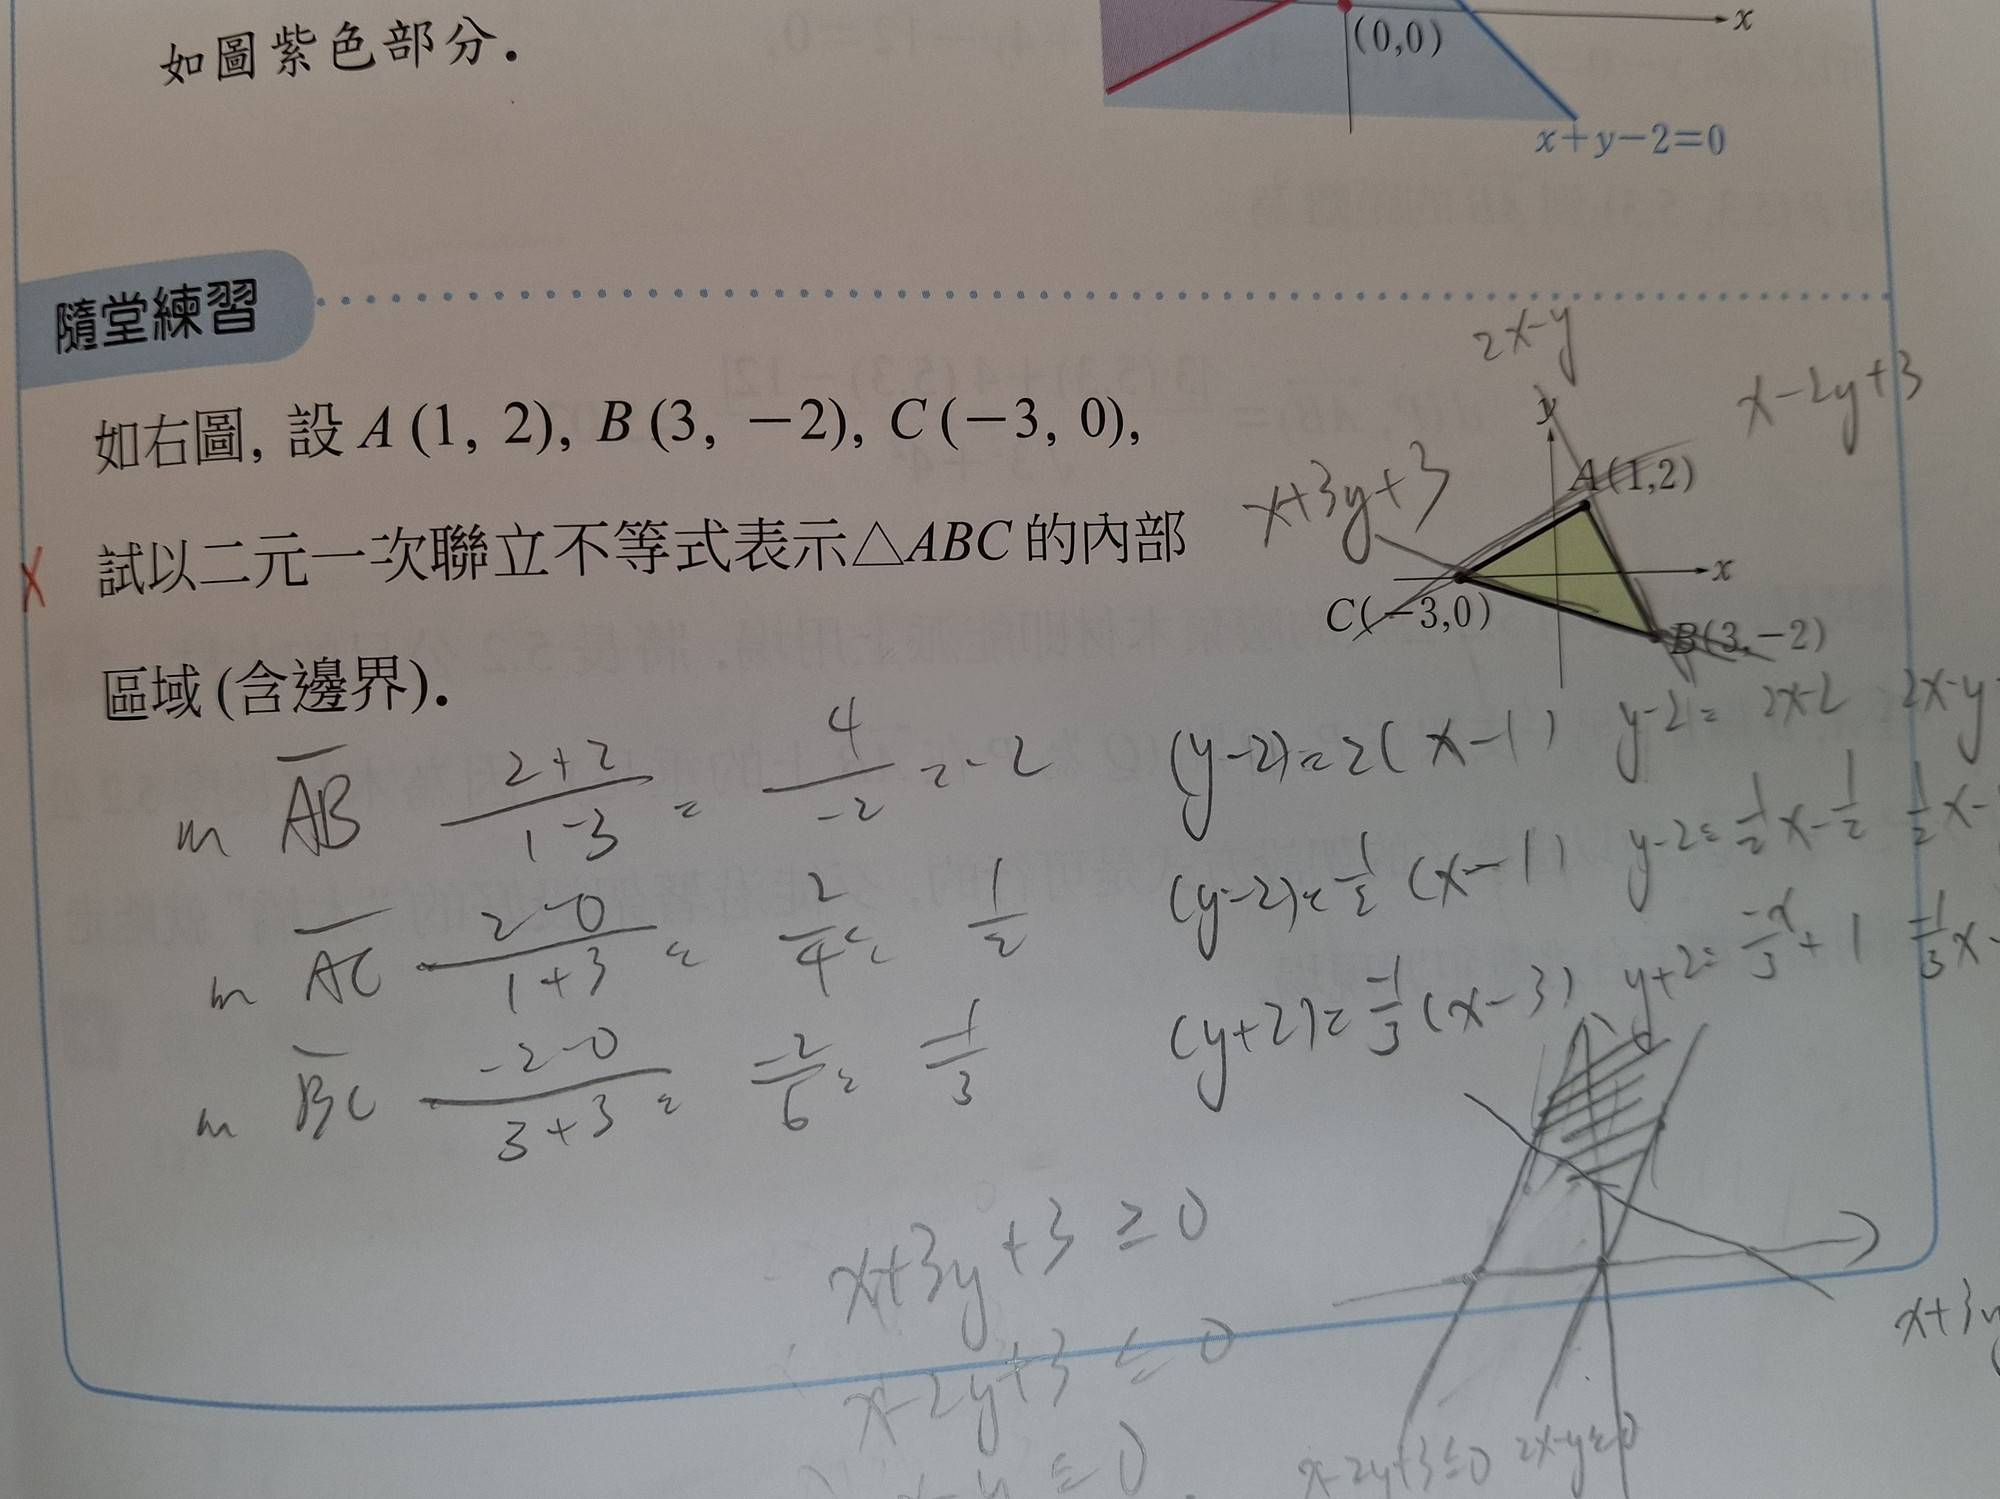 如圖紫色部分.
(0,0)
x
x+y-2=0
隨堂練習
如右圖, 設 A (1, 2), B (3, -2), C (-3, 0),
試以二元一次聯立不等式表示△ABC 的內部
區域 (含邊界).
2x-y
x-2y+3
x+3y+3
y
A(1,2)
x
C(-3,0)
B(3,-2)
m AB 2+2/1-3 = 4/-2 = -2 (y-2)=2(x-1) y-2=2x-2 2x-y
m AC 2-0/1+3 = 2/4 = 1/2 (y-2)=1/2(x-1) y-2=1/2x-1/2 1/2x-
m BC -2-0/3+3 = -2/6 = -1/3 (y+2)=-1/3(x-3) y+2=-x/3+1 -1/3x-
x+3y+3≥0
x-2y+3≤0
x+3y
x-2y+3≤0 2x-y≤0